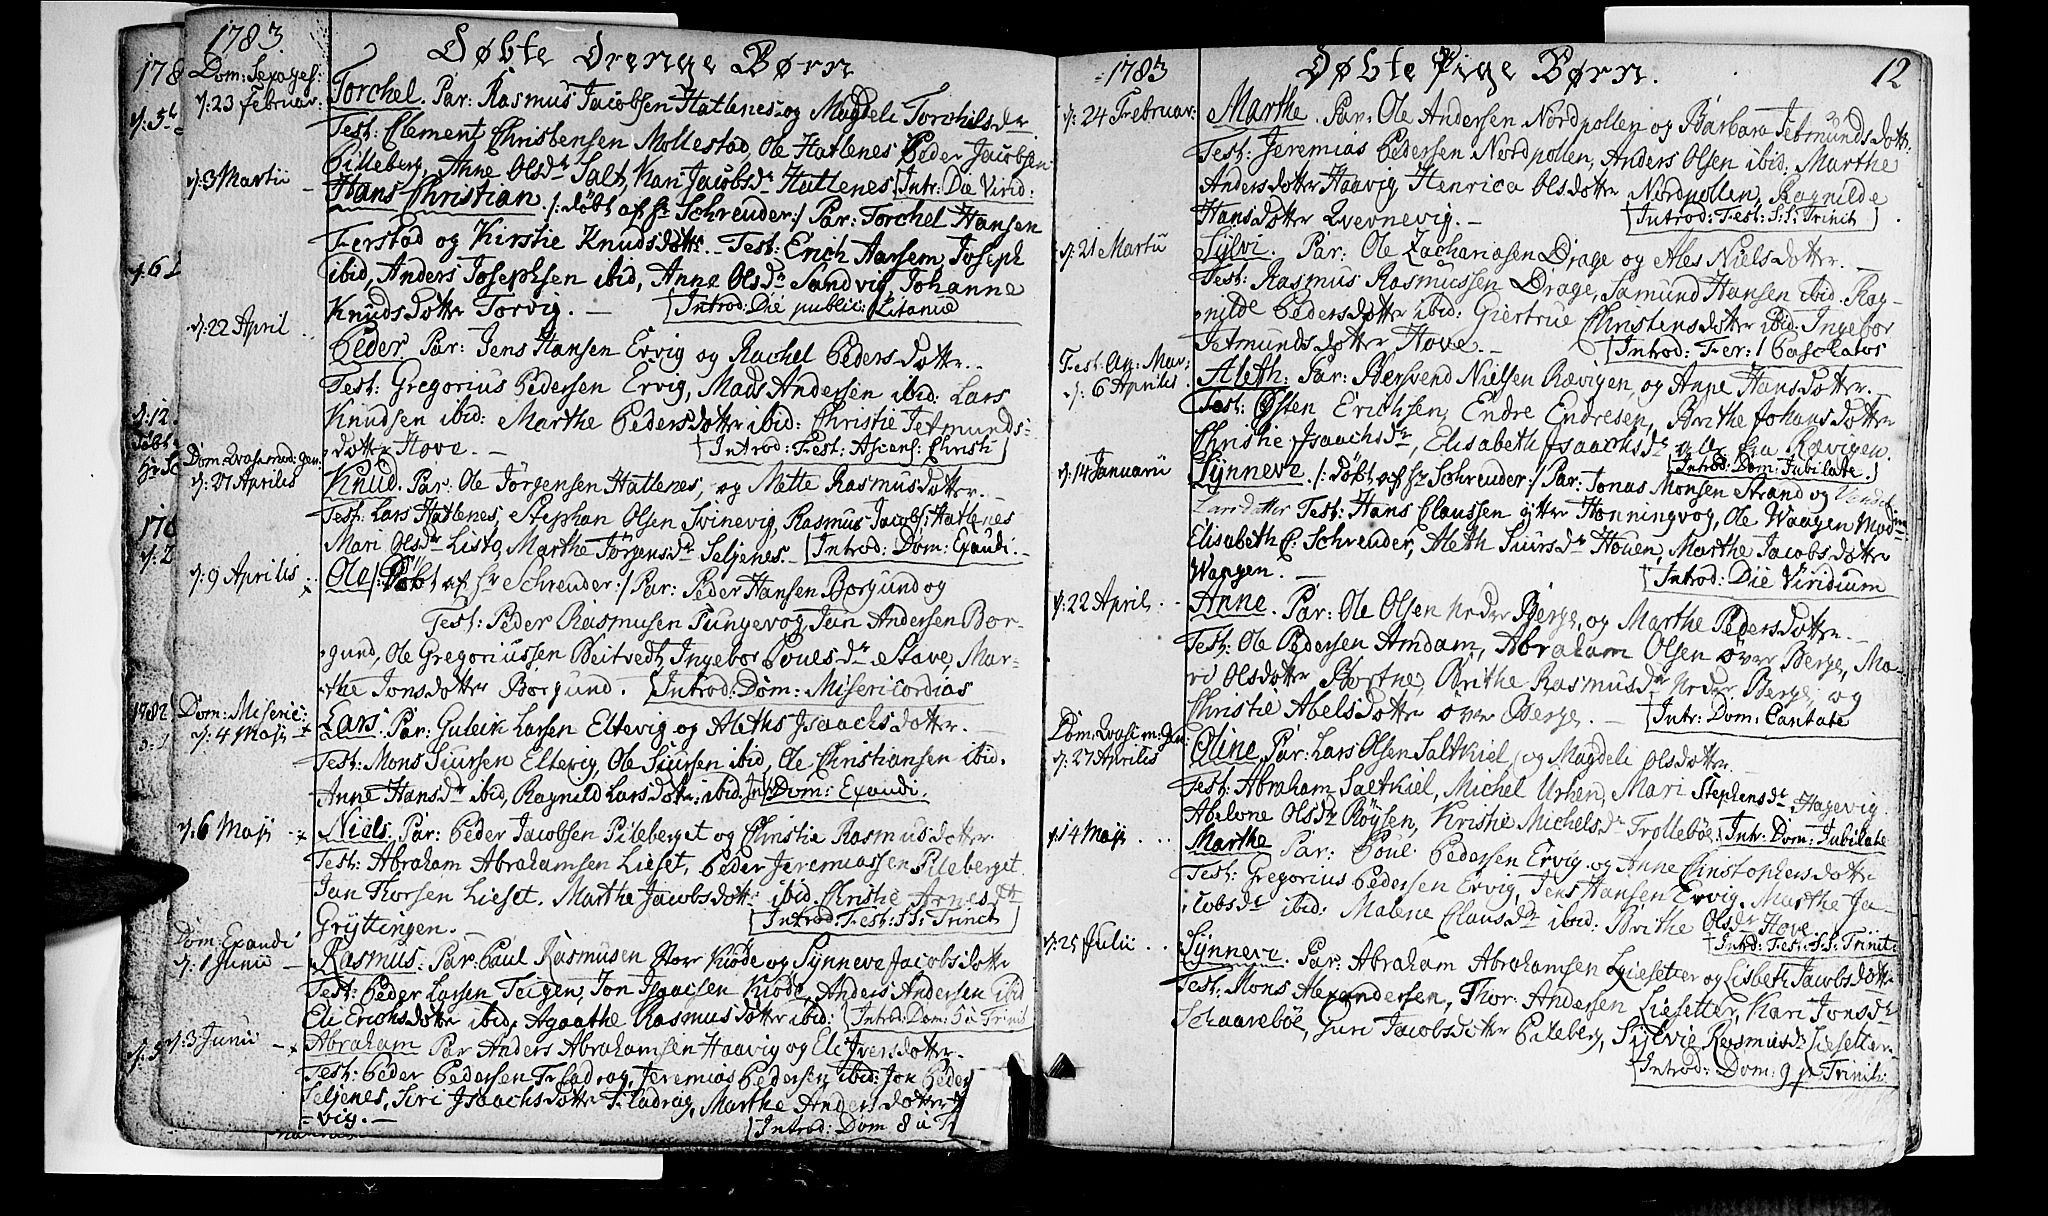 1783
Døbte Drenge Børn
Dom: Sexages:
d: 23 Februar:
Torchel. Par: Rasmus Jacobsen Hatlenes og Magdele Torchilsdr
Test: Clement Christensen Mollestad, Ole Hatlenes Peder Jacobsen
Pilleberg, Anne Olsdr Salt, Kari Jacobsdr Hatlenes Intr: Die Virid:
d: 3 Martii
Hans Christian. /: døbt af Hr Schreuder :/ Par: Torchel Hansen
Ferstad og Kirstie Knudsdotter. Test: Erich Aarsem, Joseph
ibid, Anders Josephsen ibid, Anne Olsdr Sandvig, Johanne
Knudsdotter Torvig. Introd: Die public: Litaniæ
d: 22 April
Peder Par: Jens Hansen Ervig og Rachel Pedersdotter.
Test: Gregorius Pedersen Ervig, Mads Andersen ibid: Lars
Knudsen ibid: Marthe Pedersdotter ibid: Christie Jetmunds-
dotter Hove. Introd: Fest: Ascens: Christi
Dom: Qvasimod: gen:
d: 27 Aprilis
Knud. Par: Ole Jørgensen Hatlenes, og Mette Rasmusdotter.
Test: Lars Hatlenes, Stephan Olsen Svinevig, Rasmus Jacobs: Hatlenes
Mari Olsdr Listø, Marthe Jørgensdr Seljenes. Introd: Dom: Exaudi.
d: 9 Aprilis
Ole /: Døbt af Hr Schreuder :/ Par: Peder Hansen Borgund og
Test: Peder Rasmusen Pungevog, Jan Andersen Bor-
gund, Ole Gregoriussen Beitvedt, Ingebor Poulsdr Stave, Mar-
the Jonsdotter Borgund. Introd: Dom: Misericordias
Dom: Miseric:
d: 4 Maji
Lars. Par: Guleik Larsen Eltevig og Aleths Isaachsdotter.
Test: Mons Siursen Eltevig, Ole Siursen ibid, Ole Christiansen ibid.
Anne Hansdr ibid, Ragnild Larsdotter ibid. Int: Dom: Exaudi.
d: 6 Maji
Niels. Par: Peder Jacobsen Pileberget og Christie Rasmusdotter
Test: Abraham Abrahamsen Lieset, Peder Jeremiassen Pileberget.
Jan Thorsen Lieset. Marthe Jacobsdott: ibid. Christie Arnesdr
Gryttingen. Introd: Fest: SS: Trinit
Dom: Exaudi
d: 1 Junii
Rasmus: Par: Paul Rasmusen Store Kiøde og Synneve Jacobsdotter
Test: Peder Larsen Teigen, Jon Isaacsen Kiøde, Anders Andersen ibid
Eli Erichsdotter ibid, Agaathe Rasmusdotter ibid: Introd: Dom: 5 a Trinit
d: 3 Junii
Abraham Par Anders Abrahamsen Haavig og Eli Iversdotter.
Test: Peder Pedersen Fladrag, Jeremias Pedersen ibid: Jon Peder
Seljenes, Siri Isaachsdotter Fladrag, Marthe Andersdotter
vig. Introd: Dom 8 a Tr
1783
Døbte Pige Børn.
12
d: 24 Februar:
Marthe. Par. Ole Andersen Nordpollen og Barbara Jetmundsdotter.
Test: Jeremias Pedersen Nordpollen, Anders Olsen ibid: Marthe
Andersdotter Haavig Henrica Olsdotter Nordpollen, Ragnilde
Hansdotter Qvernevig. Introd: Fest: SS: Trinit
d: 21 Martii
Sylvi. Par: Ole Zachariasen Drage og Ales Nielsdotter.
Test: Rasmus Rasmussen Drage, Samund Hansen ibid. Rag-
nilde Pedersdotter ibid: Giertrue Christensdotter ibid: Ingebor
Jetmundsdotter Hove. Introd: Fer: 1 Paschatos
Fest: An: Mar:
d: 6 Aprilis.
Aleth: Par: Bersvend Nielsen Rævigen, og Anne Hansdotter.
Test: Østen Erichsen, Endre Endresen, Brithe Johansdotter
Christie Isaachsdr, Elisabeth Isaachsdr fra Rævigen.
Introd: Dom: Jubilate.
d: 14 Januarii
Synneve. /: døbt af Hr Schreuder :/ Par: Jonas Monsen Strand og
Larsdatter Test: Hans Claussen ytter Honningvog, Ole Waagen Mad
Elisabeth C. Schreuder, Aleth Siursdr Houen, Marthe Jacobsdotter
Waagen. Introd: Die Viridium
d: 22 April:
Anne. Par: Ole Olsen Nedre Berge, og Marthe Pedersdotter.
Test: Ole Pedersen Amdam, Abraham Olsen øvre Berge, Ma-
ri Olsdotter Bortne, Brithe Rasmusdr Nedre Berge, og
Christie Abelsdotter øvre Berge. Intr: Dom: Cantate
Dom: Qvasim: Gen:
d: 27 Aprilis
Oline. Par: Lars Olsen Saltkiel, og Magdele Olsdotter
Test: Abraham Saltkiel, Michel Urhen, Mari Stephensdr Hagevig
Abelone Olsdr Røysen, Kristie Michelsdr Trollebøe: Intr: Dom: Jubilate
d: 4 Maji
Marthe Par: Poul Pedersen Ervig og Anne Christophersdotter
Test: Gregorius Pedersen Ervig, Jens Hansen Ervig. Marthe Ja-
cobsdr ibid: Malene Clausdr ibid: Brithe Olsdr Hove.
Introd: Fest: SS: Trinit:
d: 25 Julii
Synneve. Par: Abraham Abrahamsen Liesetter og Lisbeth Jacobsdotter
Test: Mons Alexandersen, Thor: Andersen Liesetter, Kari Jonsdr
Skaarebøe, Guri Jacobsdotter Pileberg, Sylvie Rasmusdr Liesetter
Introd: Dom: 9 p: Trinit: